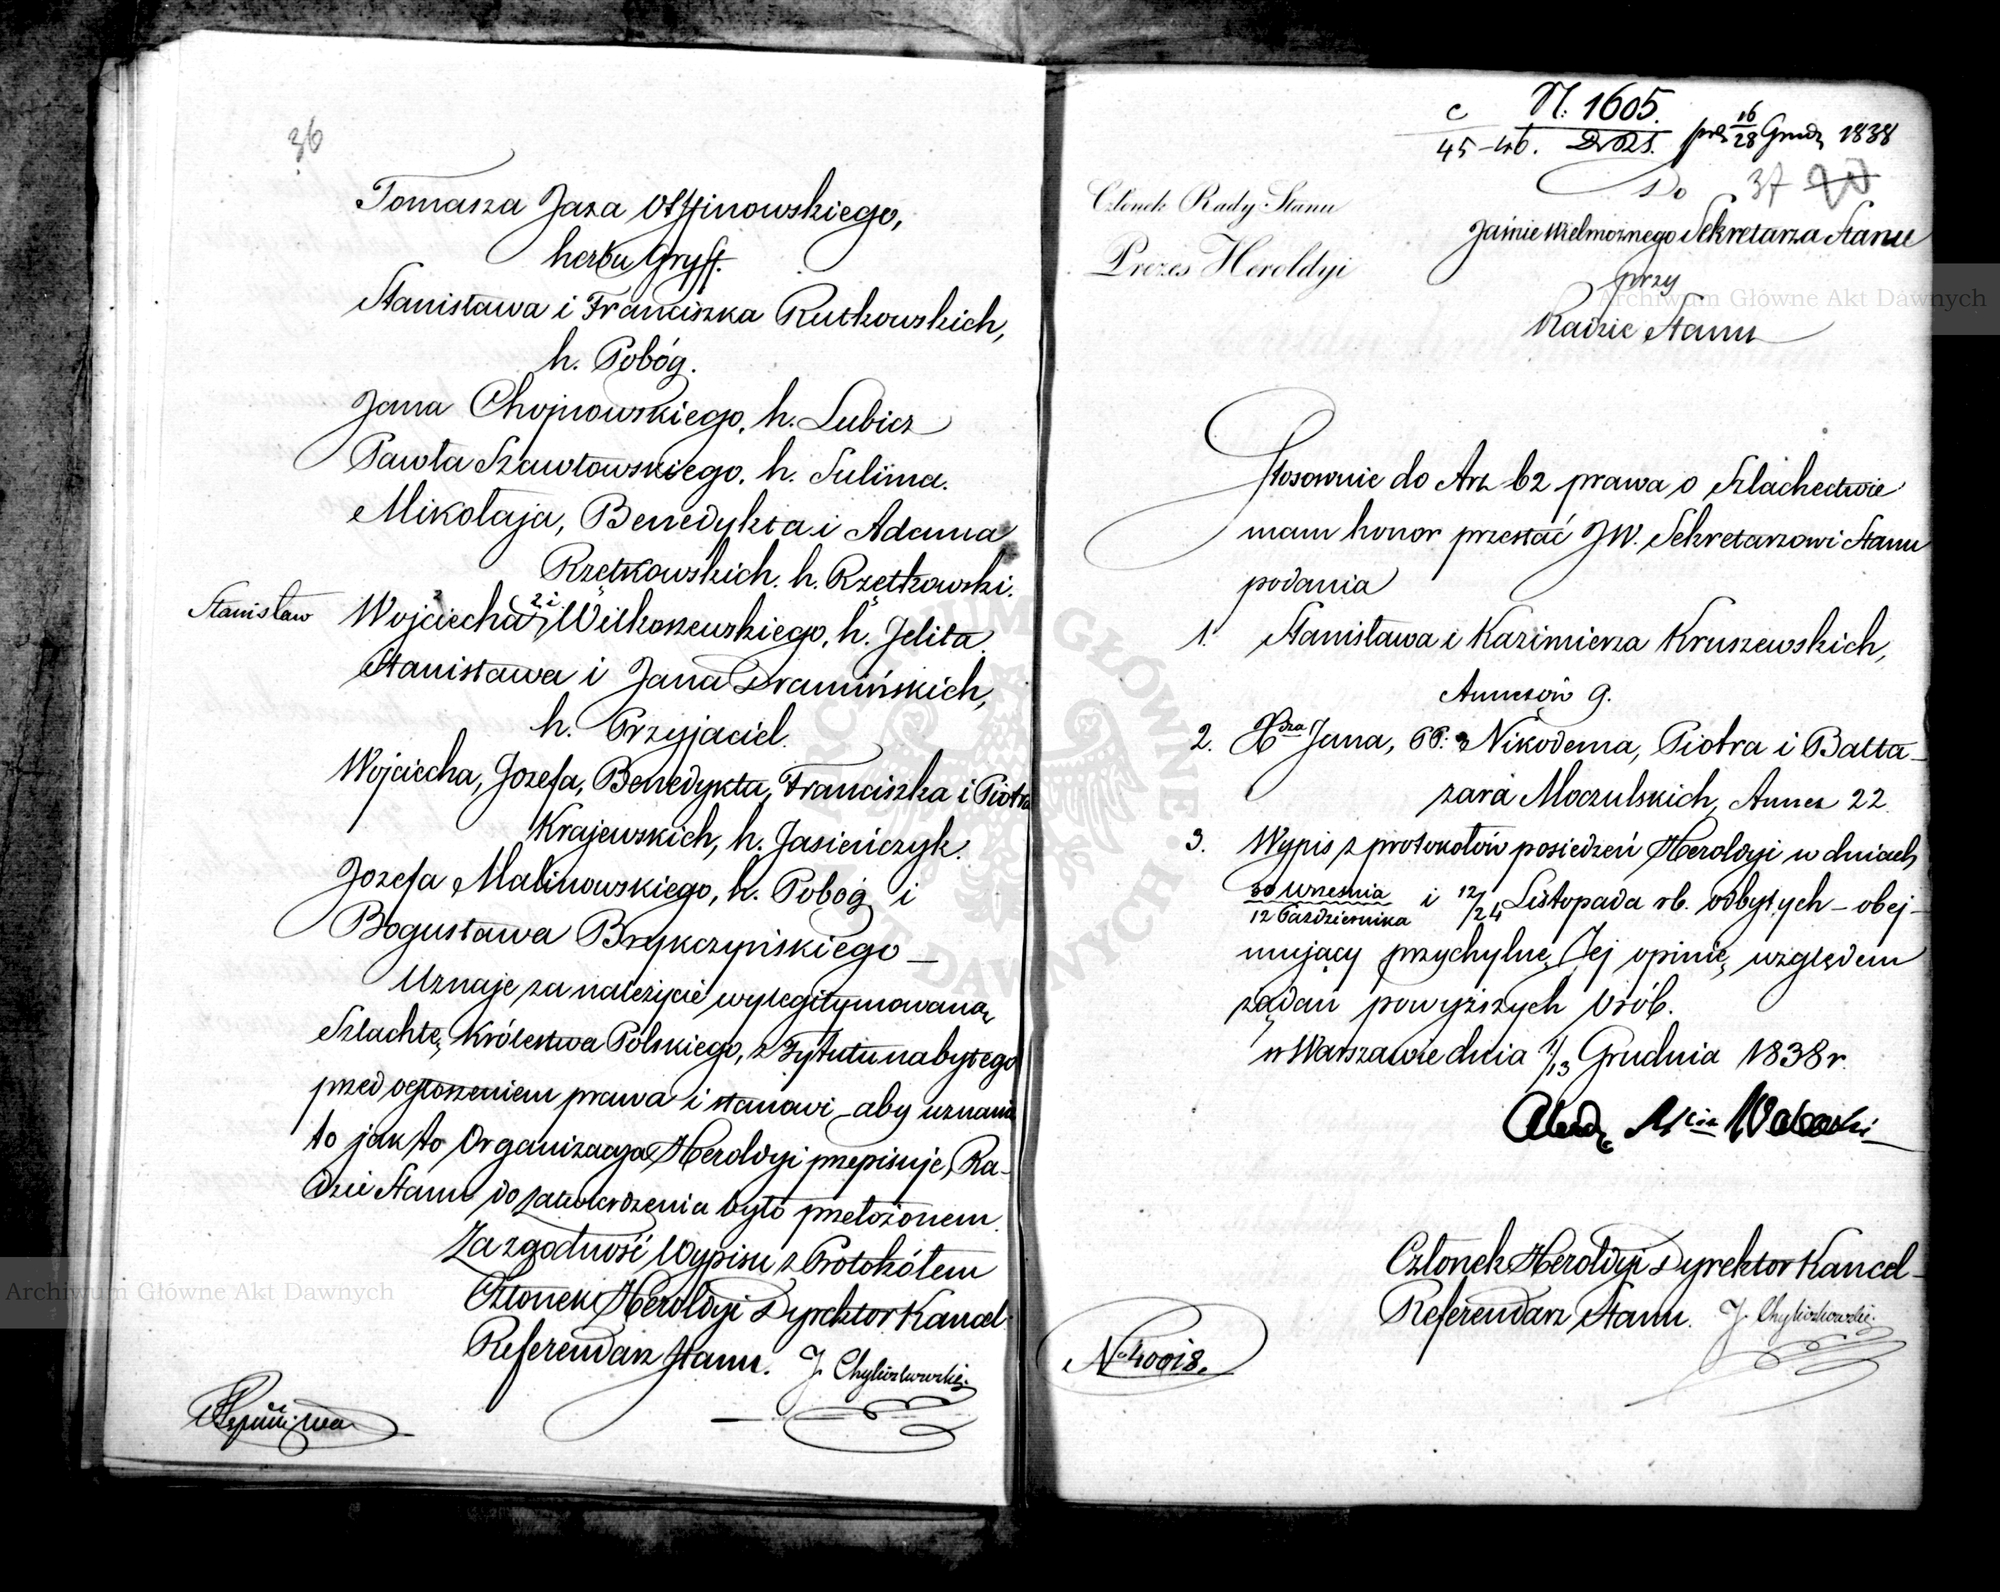 36
Tomasza Jaxa Ossinowskiego,
herbu Gryff.
Stanisława i Franciszka Rutkowskich,
h. Pobóg.
Jana Chojnowskiego, h. Lubicz
Pawła Szawłowskiego, h. Sulima.
Mikołaja, Benedykta i Adama
Rzętkowskich. h. Rzętkowski.
Stanisław
Wojciecha Wilkoszewskiego, h. Jelita.
Stanisława i Jana Dramińskich,
h. Przyjaciel.
Wojciecha, Józefa, Benedykta, Franciszka i Piotra
Krajewskich, h. Jasieńczyk.
Józefa Malinowskiego, h. Pobóg i
Bogusława Brykczyńskiego —
Uznaje za należycie wylegitymowaną
Szlachtę Królestwa Polskiego, z Tytułu nabytego
przed ogłoszeniem prawa i stanowi aby uznanie
to jak to Organizacya Heroldyi przepisuje, Ra-
dzie Stanu do zatwierdzenia było przełożonem.
Za zgodność Wypisu z Protokółem
Członek Heroldyi Dyrektor Kancel:
Referendarz Stanu. J. Chyliczkowski.
C
45-46.
N: 1605.
prez 16/28 Grudz 1838
Do
37
Członek Rady Stanu
Prezes Heroldyi
Jaśnie Wielmożnego Sekretarza Stanu
przy
Radzie Stanu
Stosownie do Art 62 prawa o Szlachectwie
mam honor przesłać JW. Sekretarzowi Stanu
podania
1. Stanisława i Kazimierza Kruszewskich,
Annexów 9.
2. Xdza Jana, PP. Nikodema, Piotra i Balta-
zara Moczulskich, Annex 22.
3. Wypis z protokołów posiedzeń Heroldyi w dniach
30 Września/12 Października i 12/24 Listopada rb. odbytych — obej-
mujący przychylnę Jej opinię, względem
żądań powyższych Osób.
w Warszawie dnia 1/13 Grudnia 1838 r.
Członek Heroldyi Dyrektor Kancel-
Referendarz Stanu. J. Chyliczkowski.
No 40018.
Archiwum Główne Akt Dawnych
Archiwum Główne Akt Dawnych
ARCHIWUM GŁÓWNE AKT DAWNYCH